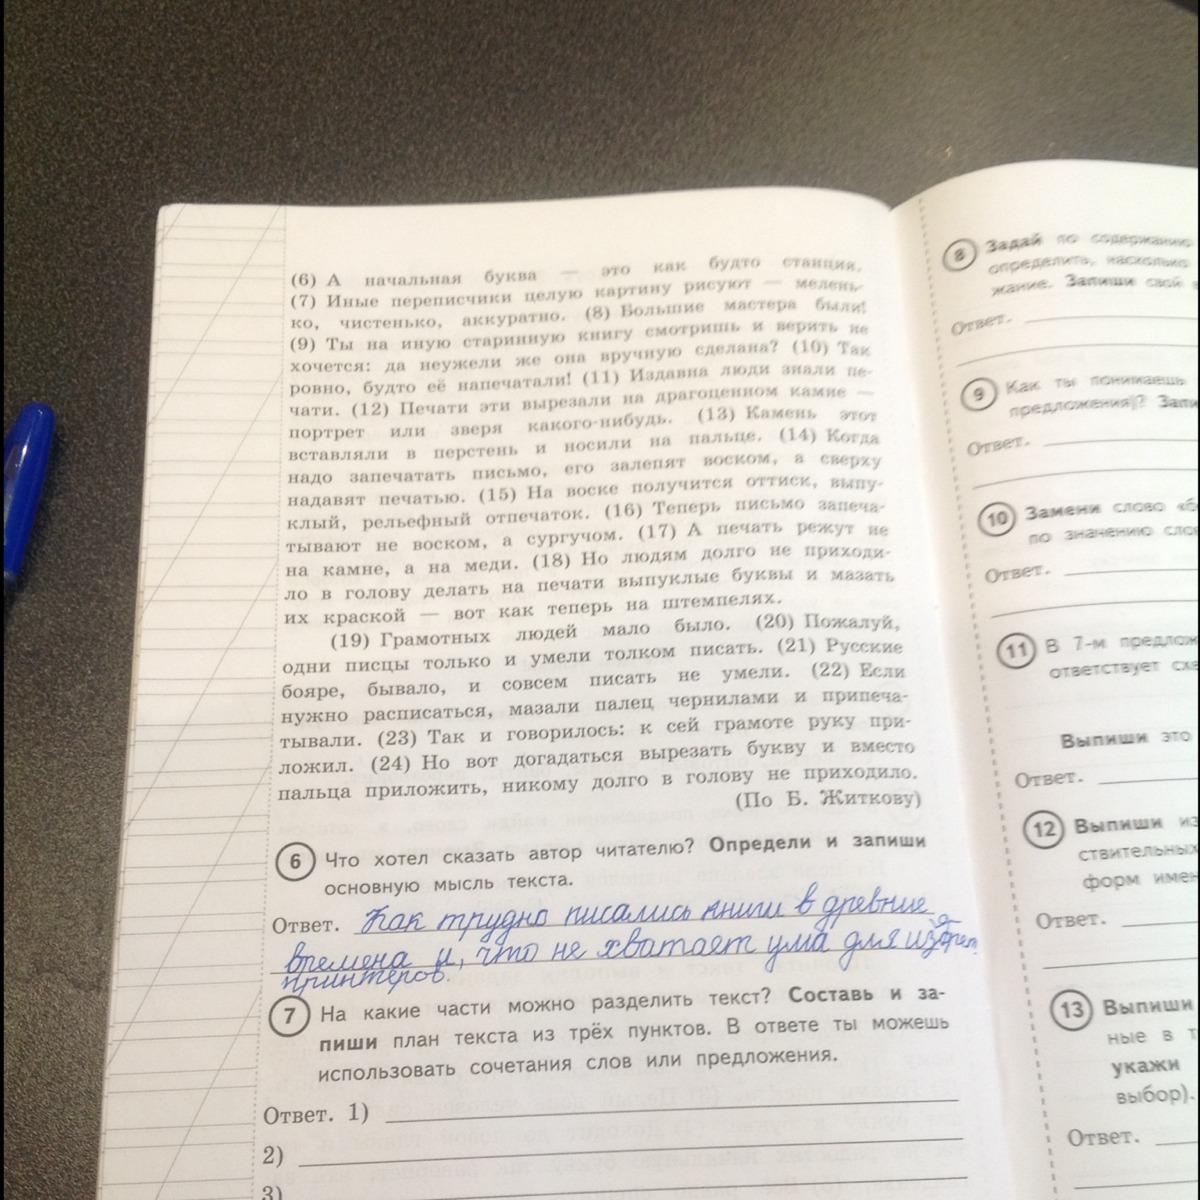 (6) А начальная буква — это как будто станция.
(7) Иные переписчики целую картину рисуют — мелень-
ко, чистенько, аккуратно. (8) Большие мастера были!
(9) Ты на иную старинную книгу смотришь и верить не
хочется: да неужели же она вручную сделана? (10) Так
ровно, будто её напечатали! (11) Издавна люди знали пе-
чати. (12) Печати эти вырезали на драгоценном камне —
портрет или зверя какого-нибудь. (13) Камень этот
вставляли в перстень и носили на пальце. (14) Когда
надо запечатать письмо, его залепят воском, а сверху
надавят печатью. (15) На воске получится оттиск, выпу-
клый, рельефный отпечаток. (16) Теперь письмо запеча-
тывают не воском, а сургучом. (17) А печать режут не
на камне, а на меди. (18) Но людям долго не приходи-
ло в голову делать на печати выпуклые буквы и мазать
их краской — вот как теперь на штемпелях.
(19) Грамотных людей мало было. (20) Пожалуй,
одни писцы только и умели толком писать. (21) Русские
бояре, бывало, и совсем писать не умели. (22) Если
нужно расписаться, мазали палец чернилами и припеча-
тывали. (23) Так и говорилось: к сей грамоте руку при-
ложил. (24) Но вот догадаться вырезать букву и вместо
пальца приложить, никому долго в голову не приходило.
(По Б. Житкову)
6 Что хотел сказать автор читателю? Определи и запиши
основную мысль текста.
Ответ. Как трудно писались книги в древние
времена и, что не хватает ума для
принтеров.
7 На какие части можно разделить текст? Составь и за-
пиши план текста из трёх пунктов. В ответе ты можешь
использовать сочетания слов или предложения.
Ответ. 1)
2)
3)
8 Задай по содержанию
определить, насколько
жание. Запиши свой
Ответ.
9 Как ты понимаешь
предложения)? Запи
Ответ.
10 Замени слово «б
по значению сло
Ответ.
11 В 7-м предлож
ответствует схе
Выпиши это
Ответ.
12 Выпиши из
ствительных
форм имен
Ответ.
13 Выпиши
ные в т
укажи
выбор).
Ответ.